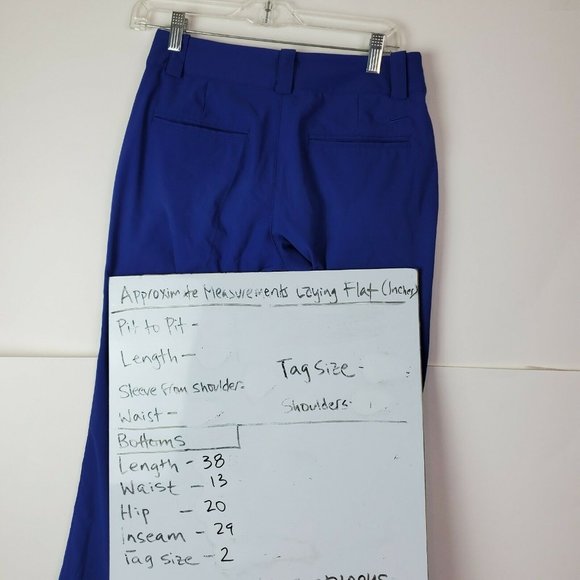 Approximate Measurements Laying Flat (Inches)
Pit to Pit -
Length -
Tag Size -
Sleeve from shoulder-
Shoulders-
Waist -
Bottoms
Length - 38
Waist - 13
Hip - 20
Inseam - 29
Tag Size - 2